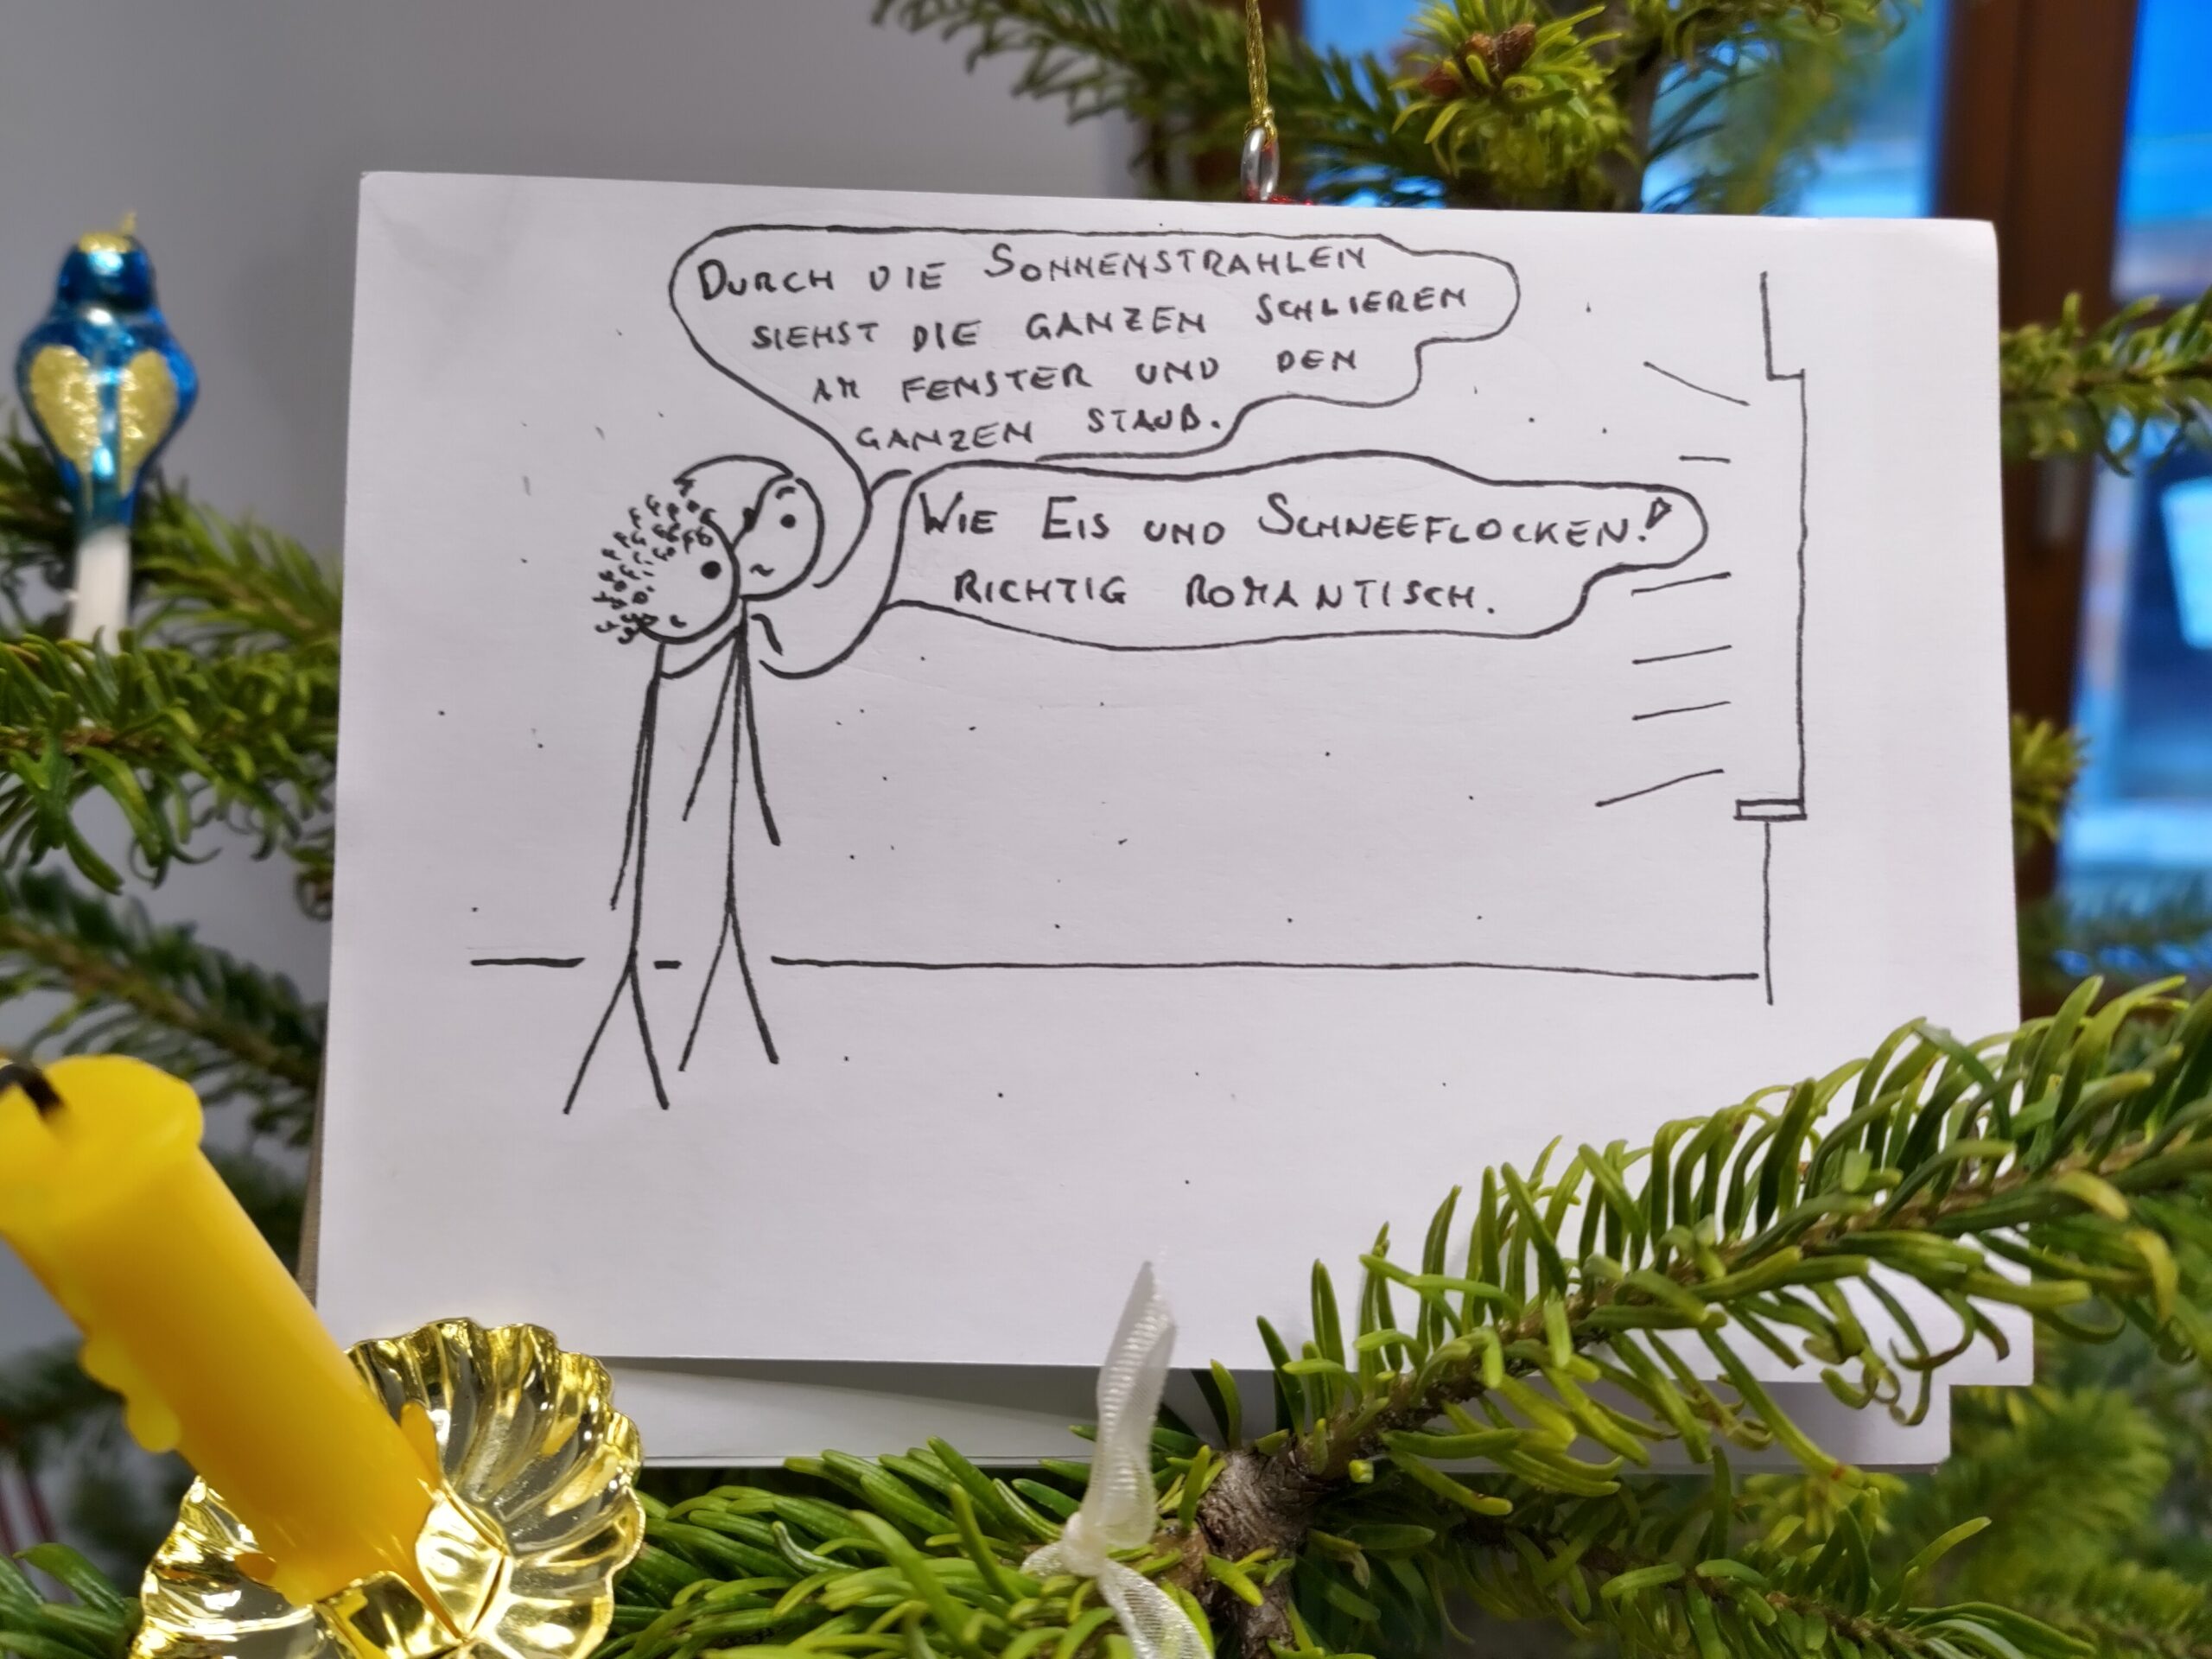 DURCH DIE SONNENSTRAHLEN
SIEHST DIE GANZEN SCHLIEREN
AM FENSTER UND DEN
GANZEN STAUB.
WIE EIS UND SCHNEEFLOCKEN!
RICHTIG ROMANTISCH.